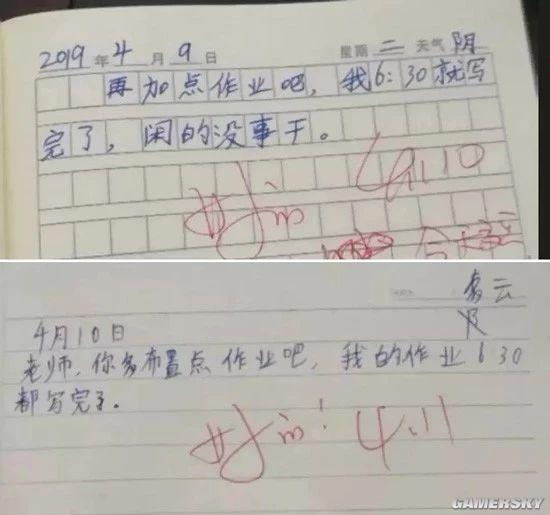 2019年4月9日 星期二 天气阴
再加点作业吧，我6:30就写
完了，闲的没事干。
好的 4.10
多云
4月10日
老师，你多布置点作业吧，我的作业6 30
都写完了。
好的！ 4.11
GAMERSKY